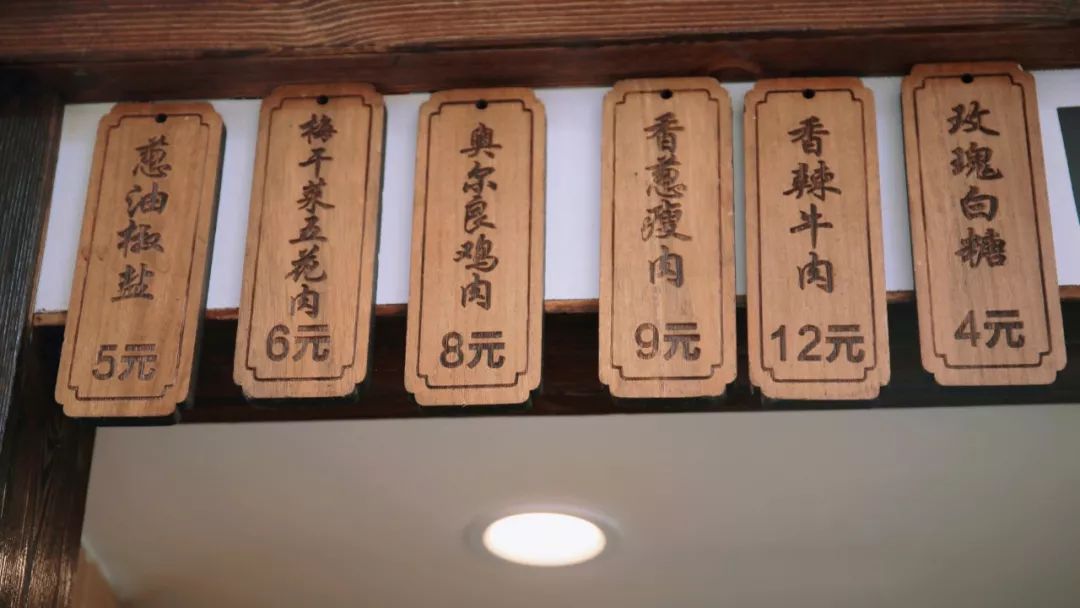 葱油椒盐
5元
梅干菜五花肉
6元
奥尔良鸡肉
8元
香葱瘦肉
9元
香辣牛肉
12元
玫瑰白糖
4元